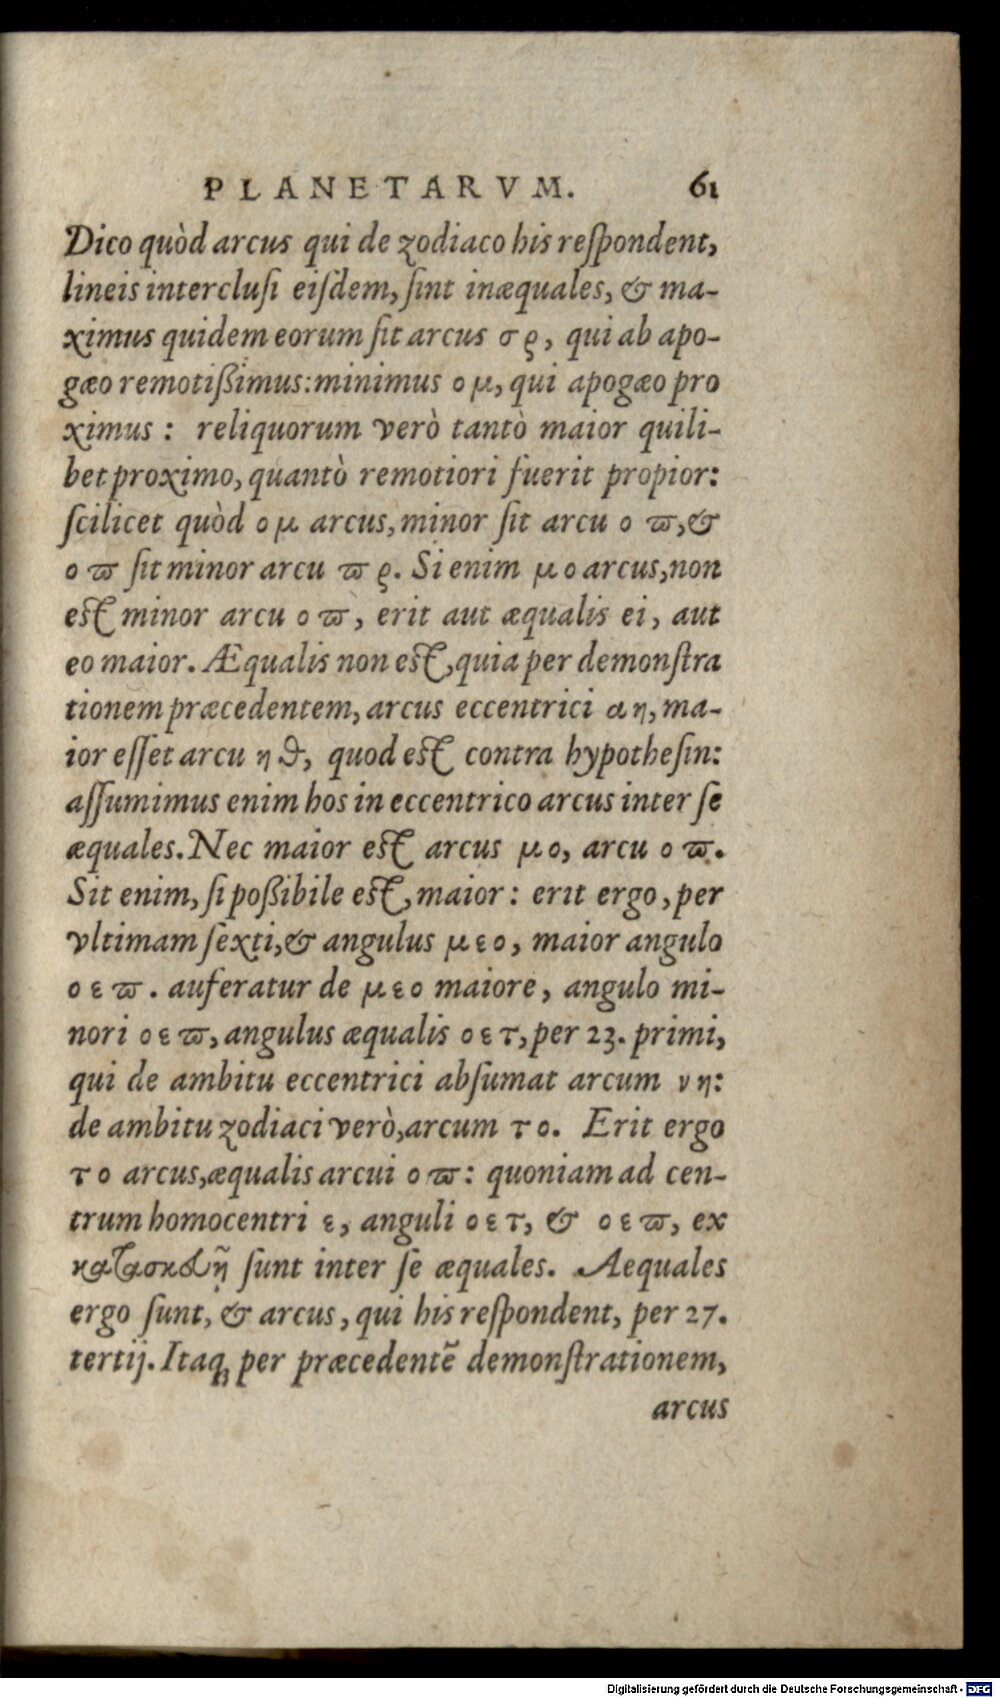 PLANETARVM. 61
Dico quòd arcus qui de zodiaco his reſpondent,
lineis intercluſi eiſdem, ſint inæquales, & ma-
ximus quidem eorum ſit arcus σ ϱ, qui ab apo-
gæo remotißimus: minimus ο μ, qui apogæo pro
ximus : reliquorum verò tantò maior quili-
bet proximo, quantò remotiori fuerit propior:
ſcilicet quòd ο μ arcus, minor ſit arcu ο ϖ, &
ο ϖ ſit minor arcu ϖ ϱ. Si enim μ ο arcus, non
eſt minor arcu ο ϖ, erit aut æqualis ei, aut
eo maior. Æqualis non eſt, quia per demonſtra
tionem præcedentem, arcus eccentrici α η, ma-
ior eſſet arcu η ϑ, quod eſt contra hypotheſin:
aſſumimus enim hos in eccentrico arcus inter ſe
æquales. Nec maior eſt arcus μ ο, arcu ο ϖ.
Sit enim, ſi poßibile eſt, maior : erit ergo, per
vltimam ſexti, & angulus μ ε ο, maior angulo
ο ε ϖ. auferatur de μ ε ο maiore, angulo mi-
nori ο ε ϖ, angulus æqualis ο ε τ, per 23. primi,
qui de ambitu eccentrici abſumat arcum ν η:
de ambitu zodiaci verò, arcum τ ο. Erit ergo
τ ο arcus, æqualis arcui ο ϖ: quoniam ad cen-
trum homocentri ε, anguli ο ε τ, & ο ε ϖ, ex
κατασκευῇ ſunt inter ſe æquales. Aequales
ergo ſunt, & arcus, qui his reſpondent, per 27.
tertij. Itaq; per præcedentẽ demonſtrationem,
arcus
Digitalisierung gefördert durch die Deutsche Forschungsgemeinschaft - DFG